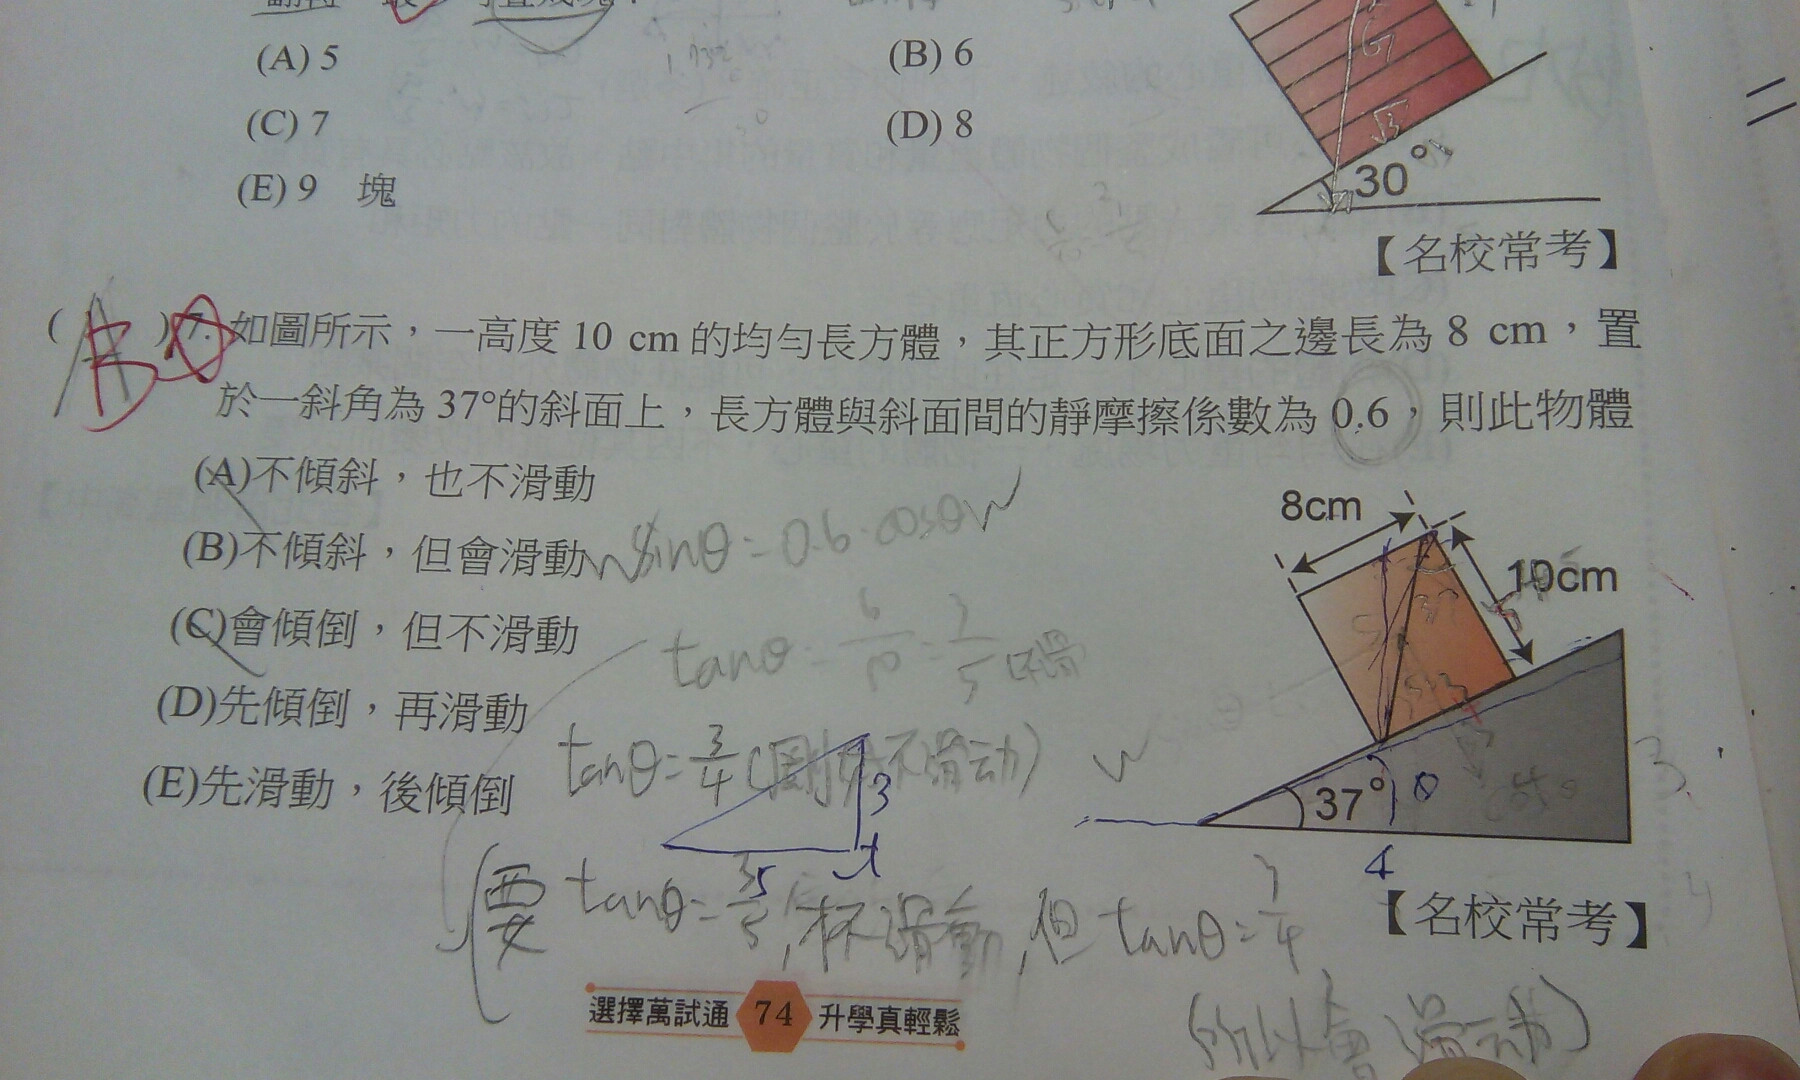 (A) 5
(B) 6
(C) 7
(D) 8
(E) 9 塊
30°
【名校常考】
( B ) 7. 如圖所示，一高度 10 cm 的均勻長方體，其正方形底面之邊長為 8 cm，置
於一斜角為 37°的斜面上，長方體與斜面間的靜摩擦係數為 0.6，則此物體
(A)不傾斜，也不滑動
(B)不傾斜，但會滑動
(C)會傾倒，但不滑動
(D)先傾倒，再滑動
(E)先滑動，後傾倒
8cm
10cm
37°
θ
3
4
Wsinθ=0.6·cosθW
tanθ=6/10=3/5 不滑
tanθ=3/4(剛好不滑动)
3
5
(要 tanθ=3/5,才不滑動,但 tanθ=3/4
所以會滑动)
【名校常考】
選擇萬試通 74 升學真輕鬆